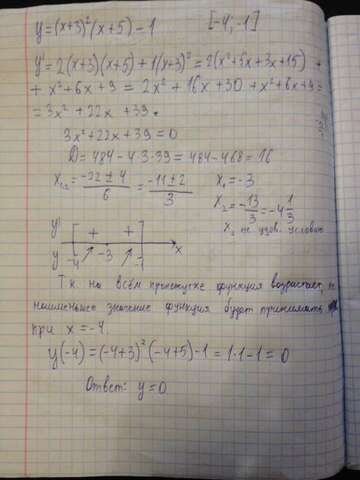 y=(x+3)²(x+5)-1 [-4,-1]
y'=2(x+3)(x+5)+1(x+3)²=2(x²+5x+3x+15)+
+x²+6x+9=2x²+16x+30+x²+6x+9=
=3x²+22x+39.
3x²+22x+39=0
D=484-4·3·39=484-468=16
x₁,₂=(-22±4)/6=(-11±2)/3 x₁=-3
x₂=-13/3=-4 1/3
x₂ не удов. условию
y' [ + + ]
y -4 ↗ -3 ↗ -1 x
Т.к на всём промежутке функция возрастает,
наименьшее значение функция будет принимать
при x=-4.
y(-4)=(-4+3)²(-4+5)-1=1·1-1=0
Ответ: y=0